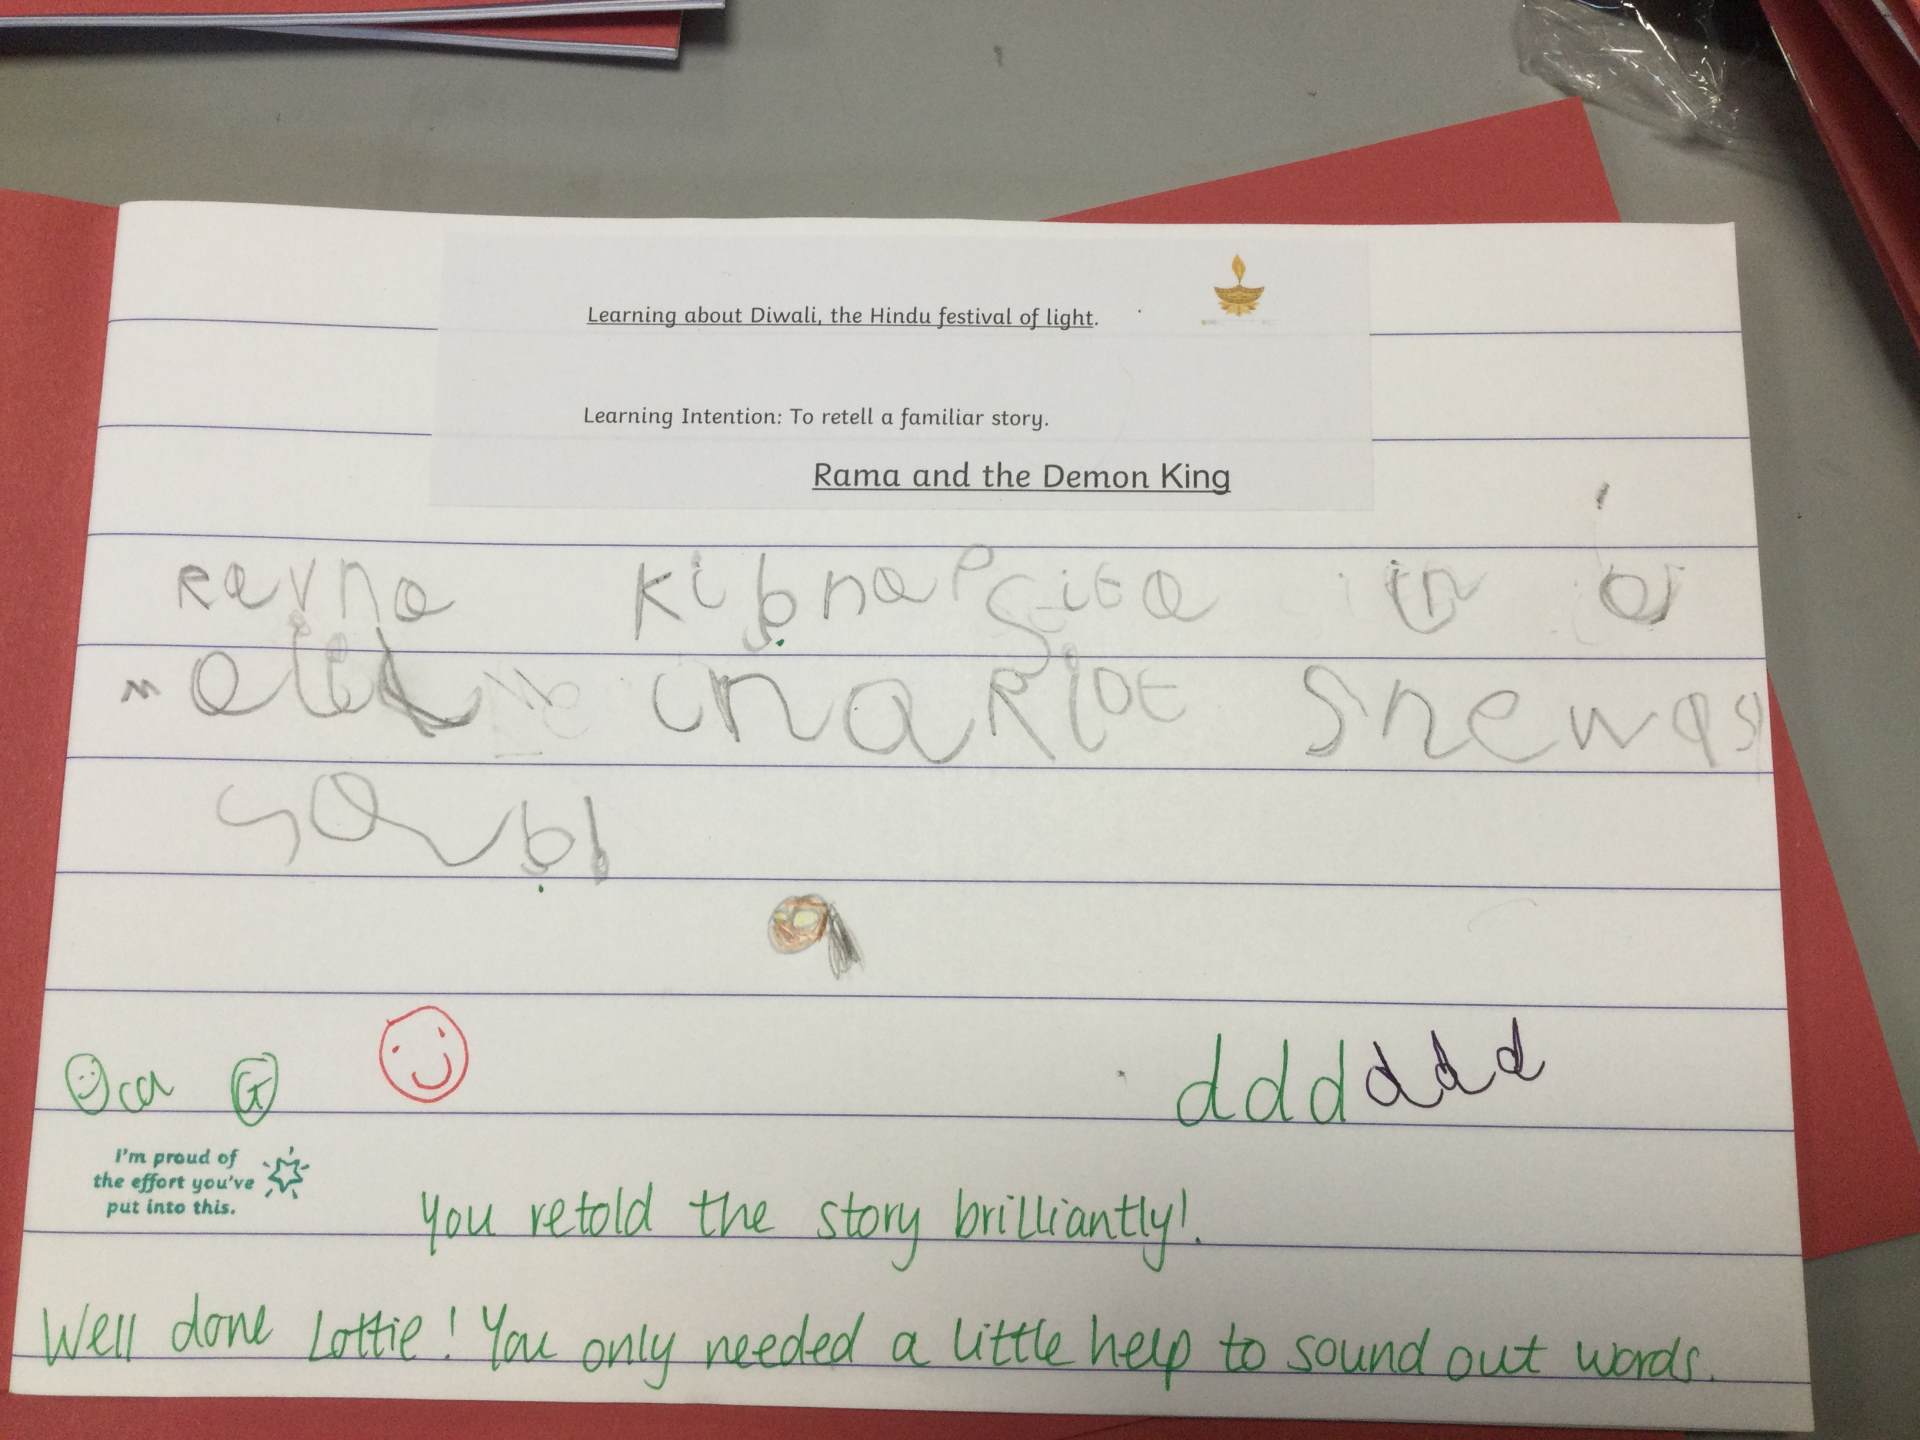 Learning about Diwali, the Hindu festival of light.
Learning Intention: To retell a familiar story.
Rama and the Demon King
Ravna Kibnap Sita in a
chariot Shewas
ddd ddd
I'm proud of
the effort you've
put into this.
You retold the story brilliantly!
Well done Lottie! You only needed a little help to sound out words.